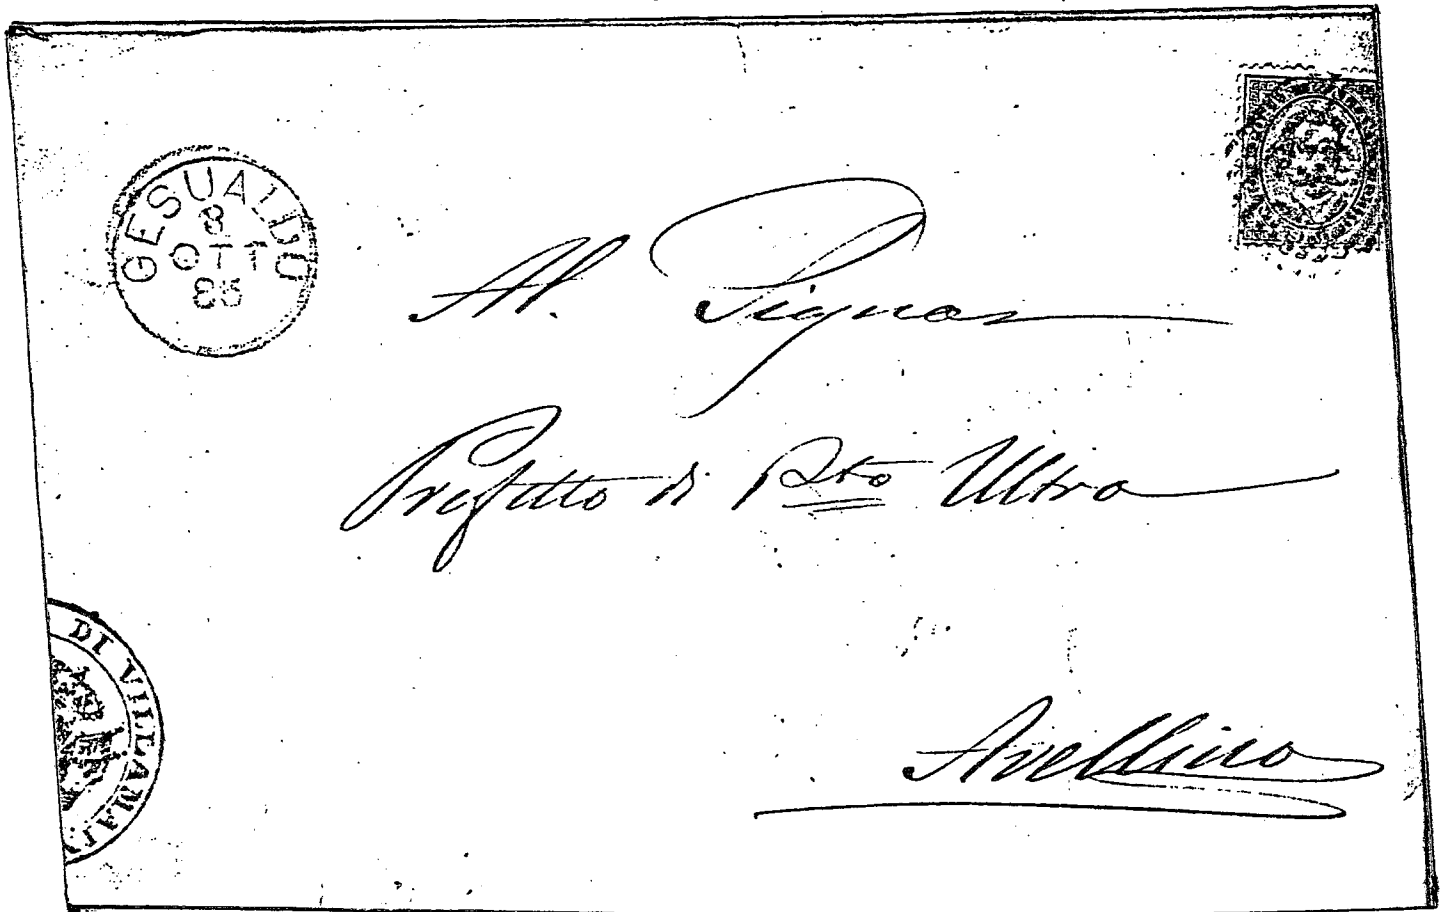 GESUALDO
8
OTT
85
Al. Signor
Prefetto di Pto Ultra
Avellino
DI VILLAMAI